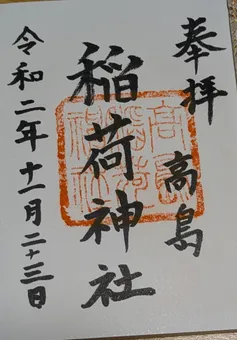 奉拝 高島
稲荷神社
令和二年十一月二十三日